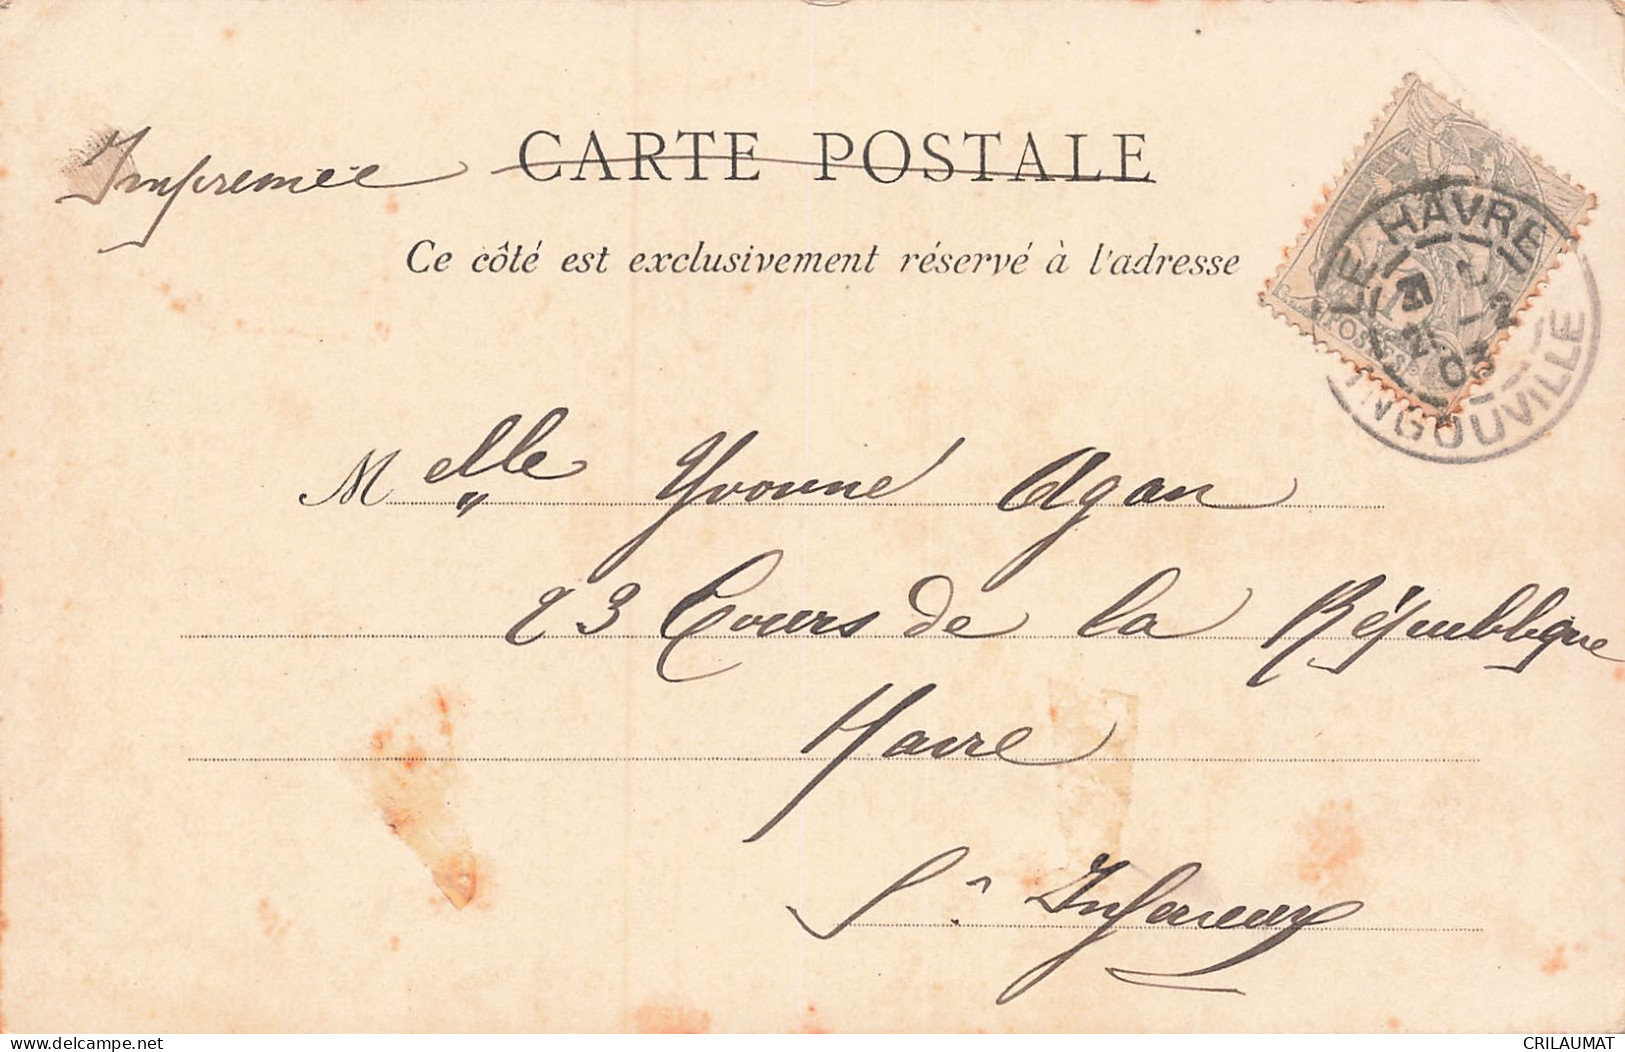 Imprimée CARTE POSTALE
Ce côté est exclusivement réservé à l'adresse
LE HAVRE
INGOUVILLE
03
POSTES
Melle Yvonne Agan
23 Cours de la République
Havre
Sne Inférieure
www.delcampe.net
CRILAUMAT